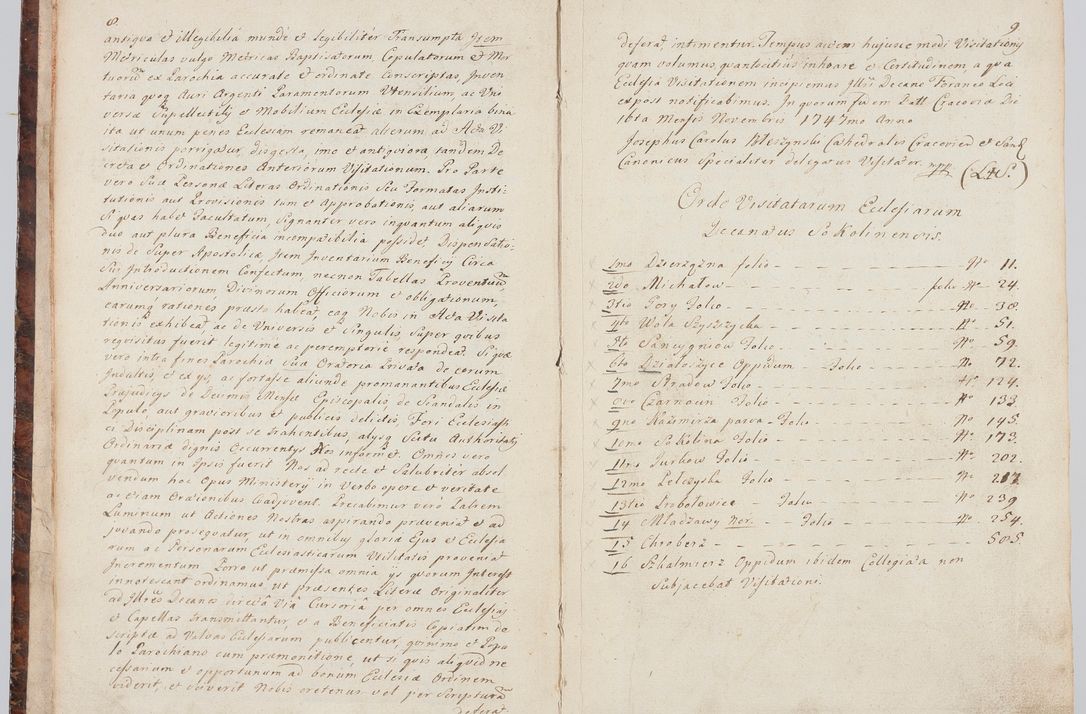 8.
antiqua et illegibilia munde et legibiliter Transumpta Item
Metriculas vulgo Metricas Baptisatorum, Copulatorum et Mor
tuorũ ex Parochia accurate et ordinate Conscriptas, Inven
taria quoq Auri Argenti Paramentorum Utensilium, ac Uni
versæ Supellectilis et Mobilium Ecclesiæ in Exemplaria bina
ita ut unum penes Ecclesiam remaneat alterum ad Acta Vi
sitationis porrigatur, disgesta, imo et antiquiora, tandem De
creta et Ordinationes Anteriorum Visitationum. Pro Parte
vero Suæ Personæ Literas Ordinationis Seu Formatas Insti-
tutionis aut Provisionis tum et Approbationis, aut aliarum
Si quas habet Facultatum, Signanter vero inquantum aliquis
duo aut plura Beneficia incompatibilia possidet Dispensatio-
nis de Super Apostolicæ, Item Inventarium Beneficy Circa
Sui Introductionem Confectum necnon Tabellas Proventuũ
Anniversariorum, Divinorum Officiorum et obligationum,
earumq rationes, præsto habeat, eaq Nobis in Acta Visita
tionis exhibeat ac de Universis et Singulis, Super quibus
requisitus fuerit legitime ac peremptorie respondeat. Si quæ
vero intra fines Parochiæ Suæ Oratoria Privata de eorum
Indultis, et ex ijs, ac fortasse aliunde promanantibus Ecclesiæ
Præjudicys de Decimis Mensæ Episcopalis de Scandalis in
Populo aut gravioribus et publicis delictis, Fori Ecclesiasti
ci Disciplinam post se trahentibus, alysq Scitu Authoritatis
Ordinariæ dignis Occurentys Nos informet. Omnes vero
quantum in Ipsis fuerit Nos ad recte et Salubriter absol
vendum hoc Opus Ministerij in Verbo opere et veritate
ac etiam Orationibus Coadjuvent. Precabimur vero Patrem
Luminum ut Actiones Nostras aspirando præveniat et ad
juvando prosequatur, ut in omnibus gloria Ejus et Ecclesia
rum ac Personarum Ecclesiasticarum Utilitatis proveniat
Incrementum. Porro ut præmissa omnia ijs quorum Interest
innotescant ordinamus ut præsentes Literæ Originaliter
ad Illres Decanos Via Cursoria per omnes Ecclesias
et Capellas transmittantur, et a Beneficiatis Copiatim de
scriptæ ad Valvas Ecclesiarum publicentur, quinimo et Popu
lo Parochiano cum præmonitione, ut si quis aliquid ne
cessarium et opportunum ad bonum Ecclesiæ Ordinem
viderit, et noverit Nobis oretenus vel per Scripturã
deferat.
9.
deferat, intimentur. Tempus autem hujusce modi Visitationis
quam volumus quantocitius inhoare et Certitudinem, a qua
Ecclesia Visitationem incipiemus Illri Decano Foraneo Loci
expost notificabimus. In quorum fidem Datt Cracoviæ Die
16ta Mensis Novembris 1747mo Anno
Josephus Carolus Kteszynski Cathedralis Cracovien et Sand
Canonicus Specialiter delegatus Visitator. mpp (L+S.)
Ordo Visitatarum Ecclesiarum
Decanatus Sokolinensis.
1mo Dzierążna folio - No 11.
2do Michałow - folio No 24.
3tio Gory Folio - No 38.
4to Wola Szyszzycka - No 51.
5to Sancygniow Folio - No 59.
6to Działoszyce Oppidum - Folio - No 72.
7mo Stradow Folio - No 124.
8vo Czarnocin Folio - No 133.
9no Kazimirza parva Folio - No 145.
10mo Sokolina Folio - No 173.
11mo Jurkow Folio - No 202.
12mo Pełczyska Folio - No 217.
13tio Probołowice - Folio - No 239.
14 Młodzawy nor. - Folio - No 254.
15 Chroberz - 505.
16 Skalmierz Oppidum ibidem Collegiata non
Subjacebat Visitationi.